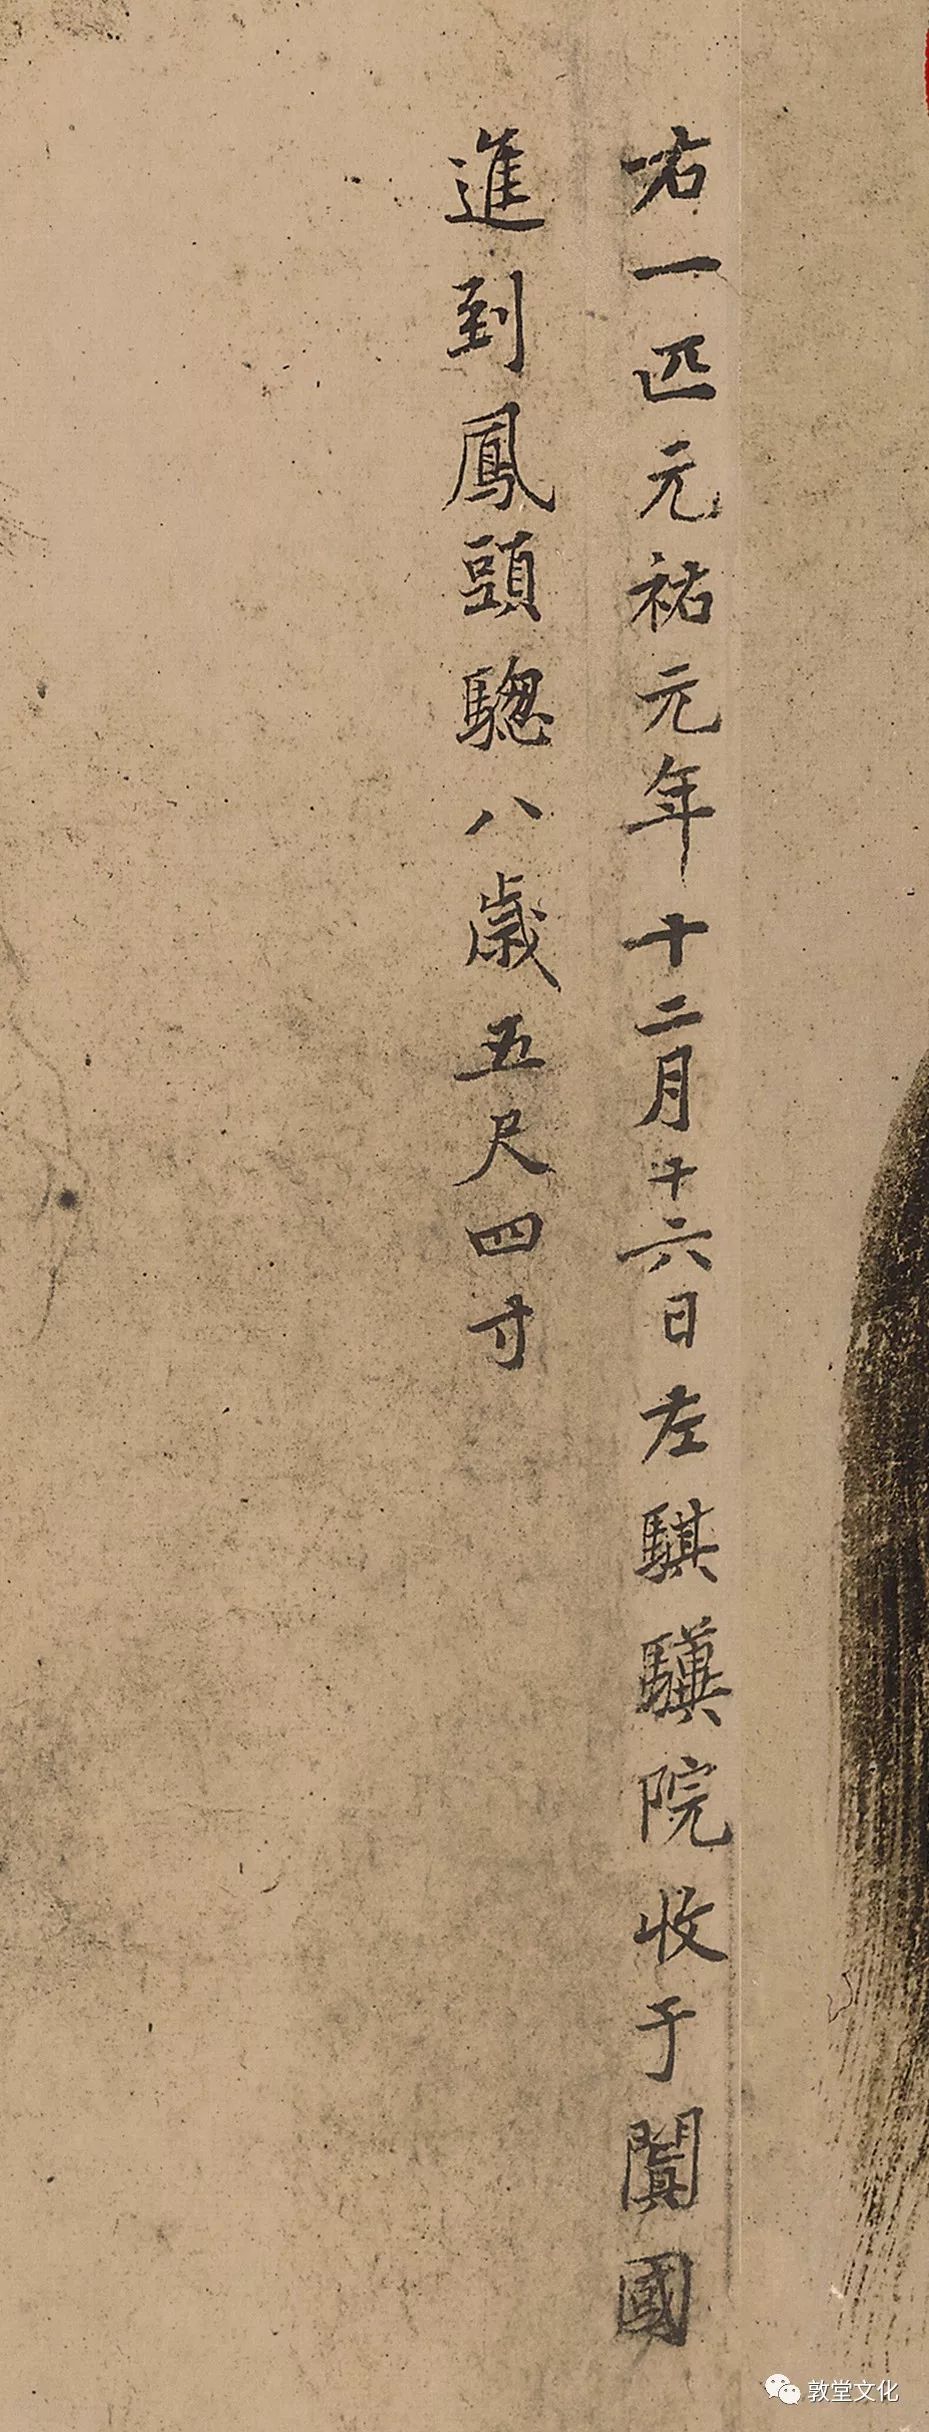 右一匹元祐元年十二月十六日左騏驥院收于闐國
進到鳳頭驄八歲五尺四寸
敦堂文化